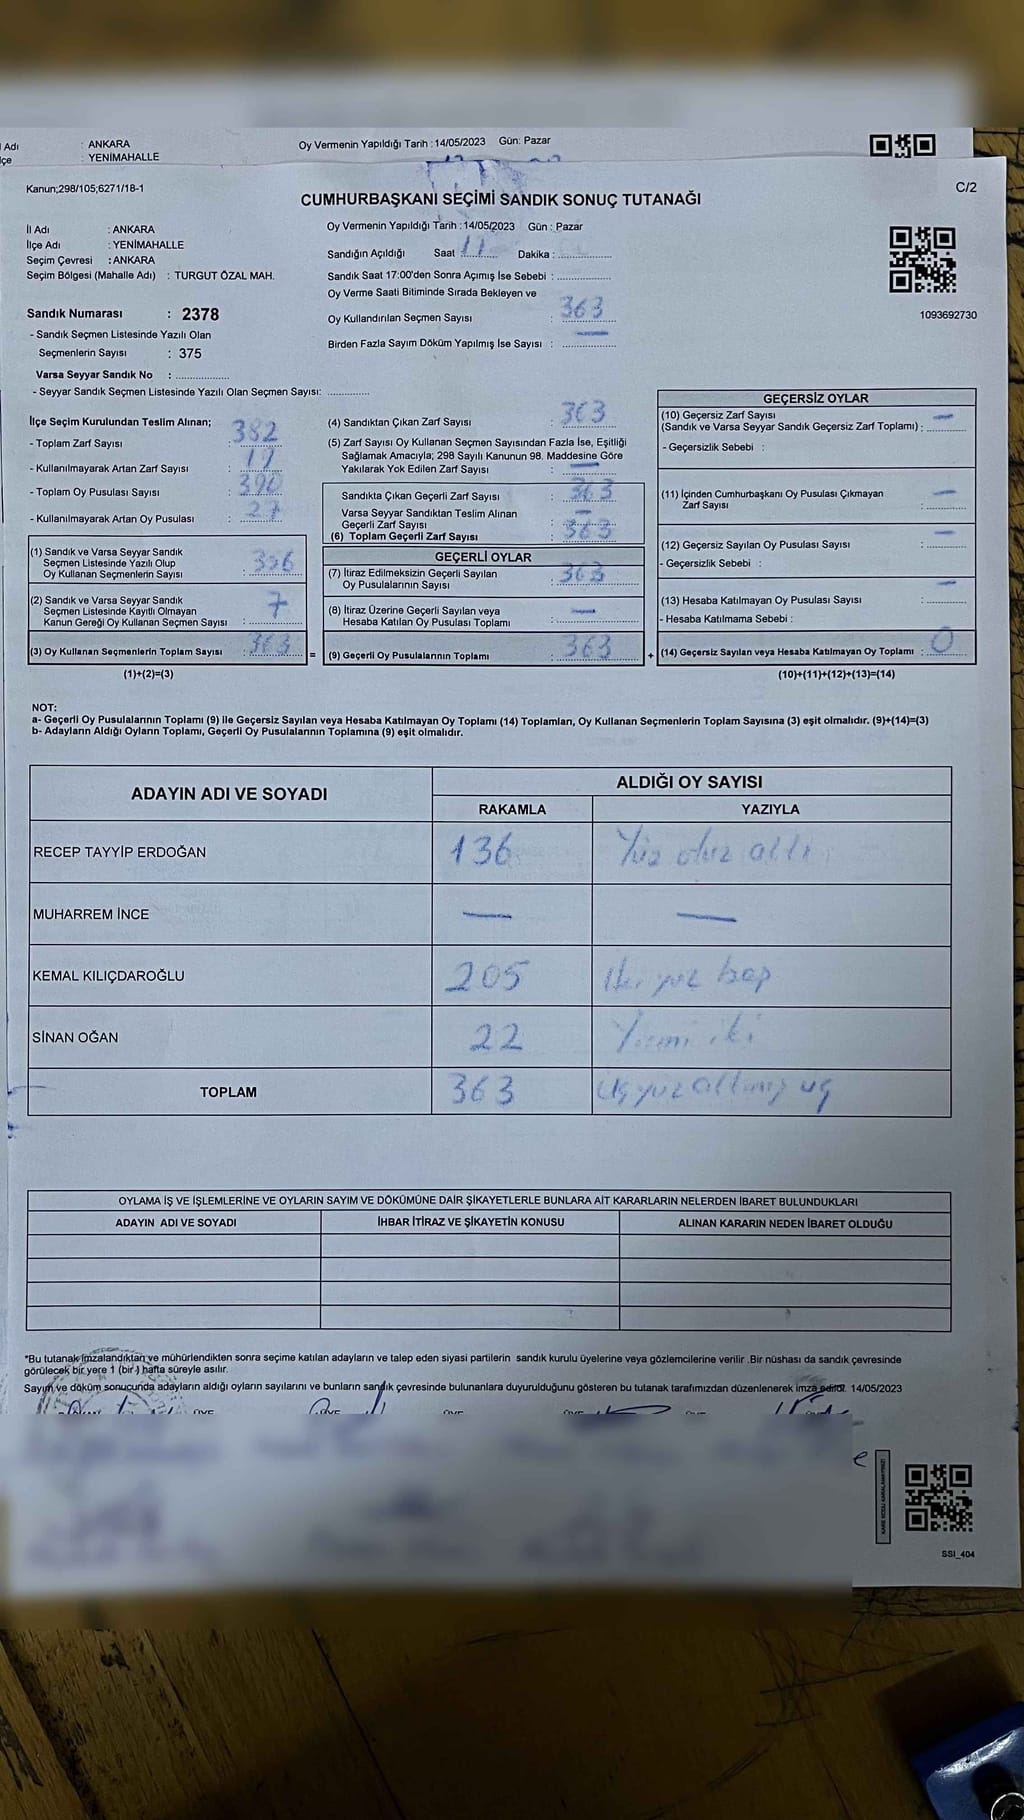 İl Adı : ANKARA
İlçe : YENİMAHALLE
Oy Vermenin Yapıldığı Tarih : 14/05/2023 Gün: Pazar
Kanun;298/105;6271/18-1
C/2
CUMHURBAŞKANI SEÇİMİ SANDIK SONUÇ TUTANAĞI
İl Adı : ANKARA
İlçe Adı : YENİMAHALLE
Seçim Çevresi : ANKARA
Seçim Bölgesi (Mahalle Adı) : TURGUT ÖZAL MAH.
Oy Vermenin Yapıldığı Tarih : 14/05/2023 Gün : Pazar
Sandığın Açıldığı Saat : 17 Dakika :
Sandık Saat 17:00'den Sonra Açımış İse Sebebi :
Oy Verme Saati Bitiminde Sırada Bekleyen ve
Oy Kullandırılan Seçmen Sayısı : 363
Birden Fazla Sayım Döküm Yapılmış İse Sayısı : —
1093692730
Sandık Numarası : 2378
- Sandık Seçmen Listesinde Yazılı Olan
Seçmenlerin Sayısı : 375
Varsa Seyyar Sandık No :
- Seyyar Sandık Seçmen Listesinde Yazılı Olan Seçmen Sayısı:
İlçe Seçim Kurulundan Teslim Alınan;
- Toplam Zarf Sayısı : 382
- Kullanılmayarak Artan Zarf Sayısı : 19
- Toplam Oy Pusulası Sayısı : 390
- Kullanılmayarak Artan Oy Pusulası : 27
(1) Sandık ve Varsa Seyyar Sandık
Seçmen Listesinde Yazılı Olup
Oy Kullanan Seçmenlerin Sayısı : 356
(2) Sandık ve Varsa Seyyar Sandık
Seçmen Listesinde Kayıtlı Olmayan
Kanun Gereği Oy Kullanan Seçmen Sayısı : 7
(3) Oy Kullanan Seçmenlerin Toplam Sayısı : 363
(1)+(2)=(3)
(4) Sandıktan Çıkan Zarf Sayısı : 363
(5) Zarf Sayısı Oy Kullanan Seçmen Sayısından Fazla İse, Eşitliği
Sağlamak Amacıyla; 298 Sayılı Kanunun 98. Maddesine Göre
Yakılarak Yok Edilen Zarf Sayısı : —
Sandıkta Çıkan Geçerli Zarf Sayısı : 363
Varsa Seyyar Sandıktan Teslim Alınan
Geçerli Zarf Sayısı : —
(6) Toplam Geçerli Zarf Sayısı : 363
GEÇERLİ OYLAR
(7) İtiraz Edilmeksizin Geçerli Sayılan
Oy Pusulalarının Sayısı : 363
(8) İtiraz Üzerine Geçerli Sayılan veya
Hesaba Katılan Oy Pusulası Toplamı : —
= (9) Geçerli Oy Pusulalarının Toplamı : 363
GEÇERSİZ OYLAR
(10) Geçersiz Zarf Sayısı
(Sandık ve Varsa Seyyar Sandık Geçersiz Zarf Toplamı) : —
- Geçersizlik Sebebi :
(11) İçinden Cumhurbaşkanı Oy Pusulası Çıkmayan
Zarf Sayısı : —
(12) Geçersiz Sayılan Oy Pusulası Sayısı : —
- Geçersizlik Sebebi :
(13) Hesaba Katılmayan Oy Pusulası Sayısı : —
- Hesaba Katılmama Sebebi :
+ (14) Geçersiz Sayılan veya Hesaba Katılmayan Oy Toplamı : 0
(10)+(11)+(12)+(13)=(14)
NOT:
a- Geçerli Oy Pusulalarının Toplamı (9) ile Geçersiz Sayılan veya Hesaba Katılmayan Oy Toplamı (14) Toplamları, Oy Kullanan Seçmenlerin Toplam Sayısına (3) eşit olmalıdır. (9)+(14)=(3)
b- Adayların Aldığı Oyların Toplamı, Geçerli Oy Pusulalarının Toplamına (9) eşit olmalıdır.
ADAYIN ADI VE SOYADI
ALDIĞI OY SAYISI
RAKAMLA YAZIYLA
RECEP TAYYİP ERDOĞAN 136 Yüz otuz altı
MUHARREM İNCE — —
KEMAL KILIÇDAROĞLU 205 İki yüz beş
SİNAN OĞAN 22 Yirmi iki
TOPLAM 363 Üç yüz altmış üç
OYLAMA İŞ VE İŞLEMLERİNE VE OYLARIN SAYIM VE DÖKÜMÜNE DAİR ŞİKAYETLERLE BUNLARA AİT KARARLARIN NELERDEN İBARET BULUNDUKLARI
ADAYIN ADI VE SOYADI İHBAR İTİRAZ VE ŞİKAYETİN KONUSU ALINAN KARARIN NEDEN İBARET OLDUĞU
*Bu tutanak imzalandıktan ve mühürlendikten sonra seçime katılan adayların ve talep eden siyasi partilerin sandık kurulu üyelerine veya gözlemcilerine verilir .Bir nüshası da sandık çevresinde
görülecek bir yere 1 (bir) hafta süreyle asılır.
Sayım ve döküm sonucunda adayların aldığı oyların sayılarını ve bunların sandık çevresinde bulunanlara duyurulduğunu gösteren bu tutanak tarafımızdan düzenlenerek imza edildi. 14/05/2023
SSI_404